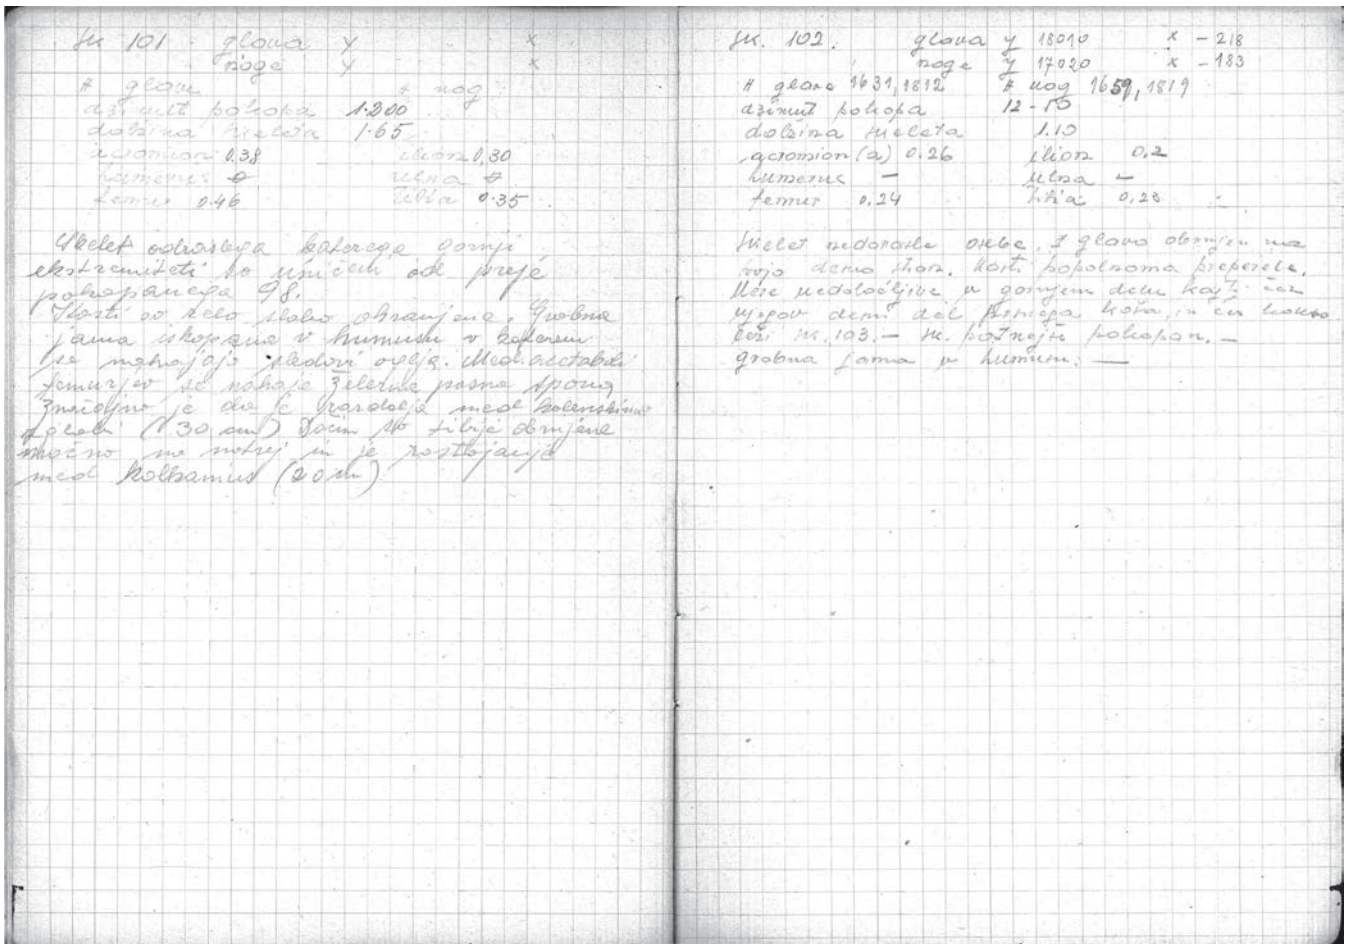 Sk 101 glava y x
noge y x
# glave # nog
azimut pokopa 1.200
dolžina skeleta 1.65
acromion 0.38 ilion 0,30
humerus ø ulna ø
femur 0.46 tibia 0.35
Skelet odraslega katerega gornji
ekstremiteti so uničeni od preje
pokopanega 98.
Kosti so zelo slabo ohranjene. Grobna
jama iskopana v humusu v katerem
se nahajajo sledovi oglja. Med acetabuli
femurjev se nahaja železna pasna spona
Značajno je da je razdalja med kolenskimi
(30 cm) Dočim so tibije obrnjene
močno na notrej in je rastojanje
med (20 cm)
Sk. 102. glava y 18010 x - 218
noge y 17020 x - 183
# glave 1631, 1812 # nog 1659, 1819
azimut pokopa 12-50
dolžina skeleta 1.10
acromion (a) 0.26 ilion 0.2
humerus – ulna –
femur 0.24 tibia 0.20
Skelet nedorasle osebe, z glavo obrnjen na
svojo desno stran. Kosti popolnoma preperele.
Mere nedoločljive v gornjem delu kajti čez
njegov desni del koša, in čez
leži sk. 103. – sk. poznejši pokopan. –
grobna jama v humusu. —